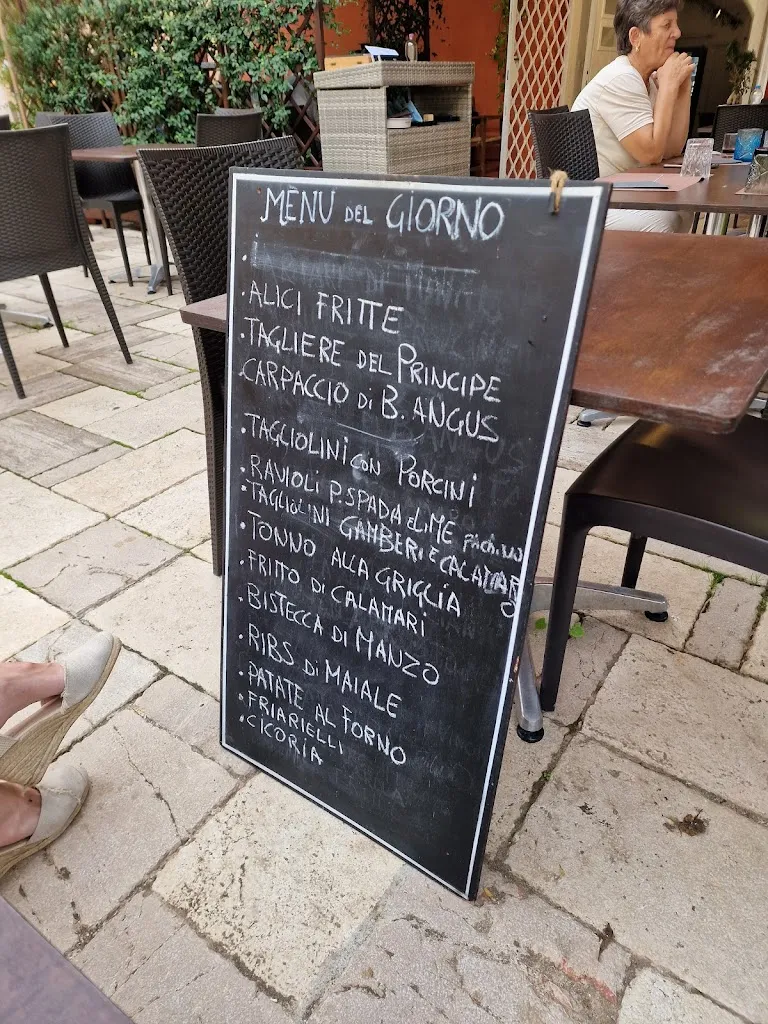 MENU DEL GIORNO
·
·ALICI FRITTE
·TAGLIERE DEL PRINCIPE
·CARPACCIO DI B. ANGUS
·TAGLIOLINI CON PORCINI
·RAVIOLI P.SPADA e LIME
·TAGLIOLINI GAMBERI E CALAMARI
·TONNO ALLA GRIGLIA
·FRITTO DI CALAMARI
·BISTECCA DI MANZO
·RIBS DI MAIALE
·PATATE AL FORNO
·FRIARIELLI
·CICORIA